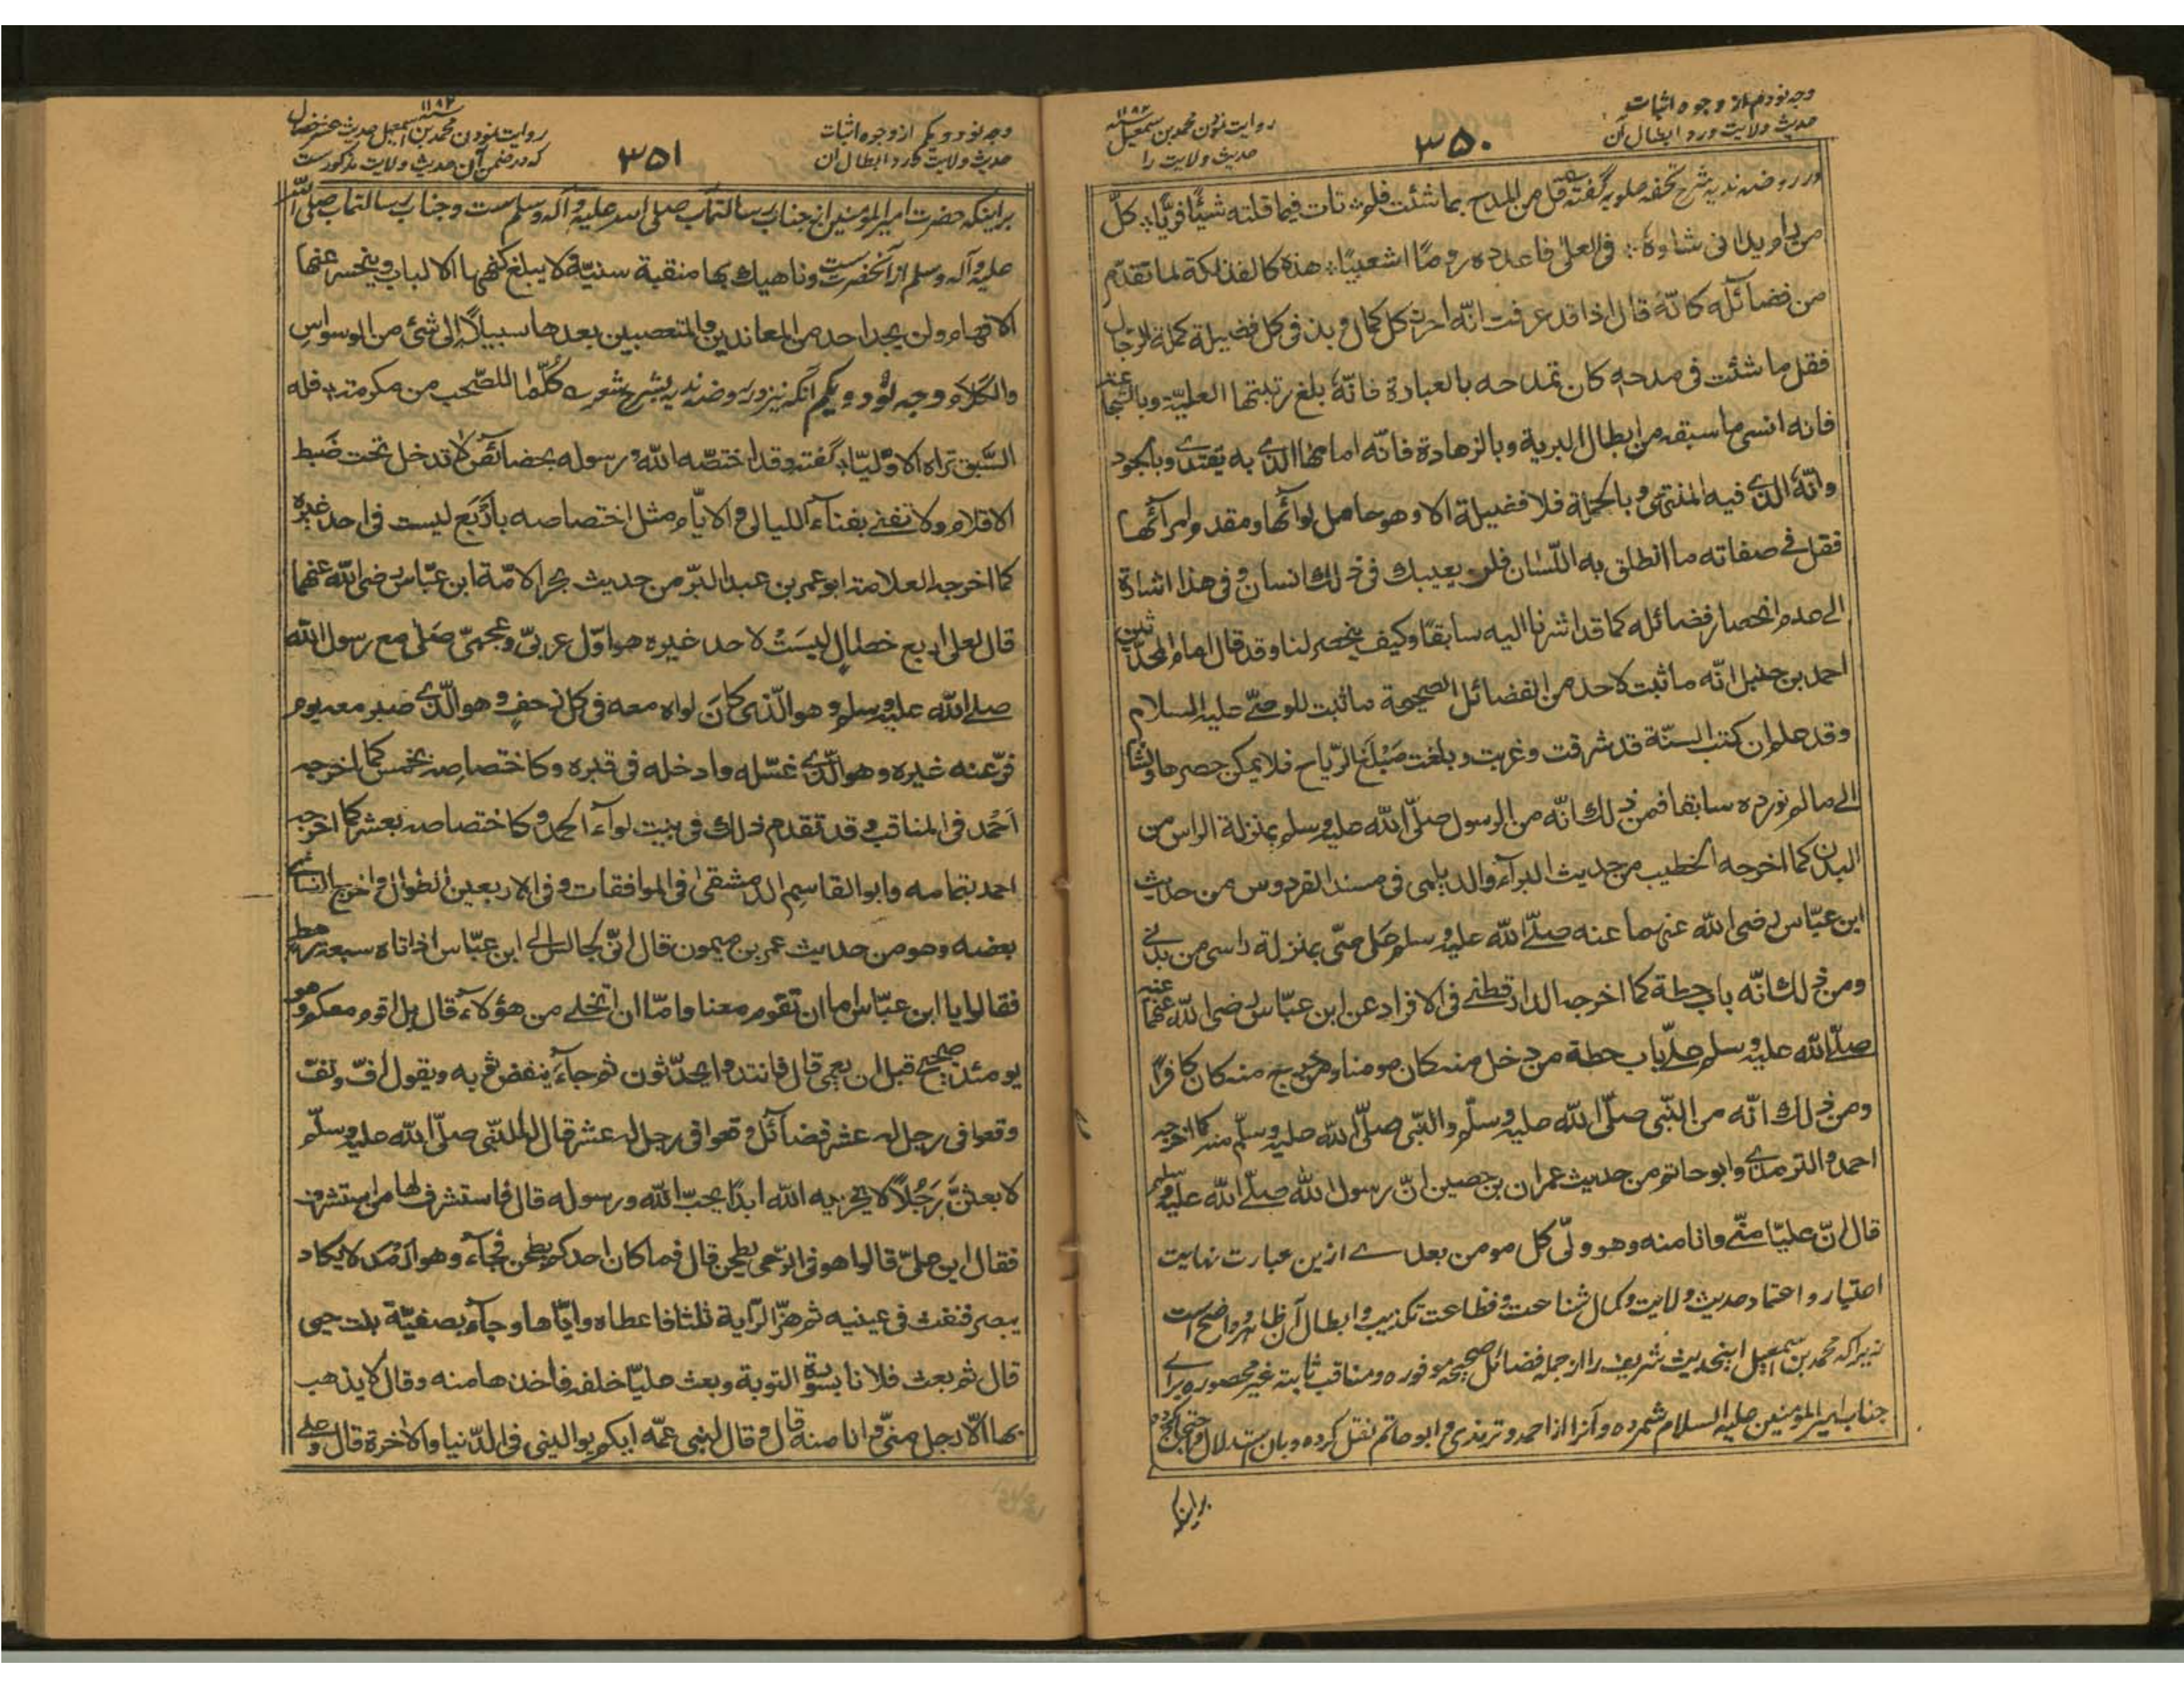 وجه نودم از وجوه اثبات
حدیث ولایت و رد ابطال آن
۳۵۰
روایت نمودن محمد بن اسمعیل ۱۱۸۲
حدیث ولایت را
در روضه ندیه شرح تحفه علویه گفته قل من المدح بما شئت فلم تات فیما قلته شیئا فریا کل
من رام یدانی شاوه فی العلی فاعدده روما اشعبیا هذه کالفذلکة لما تقدم
من فضائله کانه قال اذا قد عرفت انه احرز کل کمال و بذ فی کل فضیلة کملة الرجال
فقل ما شئت فی مدحه کان تمدحه بالعبادة فانه بلغ رتبتها العلیة و بالشجاعة
فانه انسی ما سبقه من ابطال البریة و بالزهادة فانه امامها الذی به یقتدی و بالجود
و انه الذی فیه المنتهی و بالجملة فلا فضیلة الا و هو حامل لوائها و مقدم امرائها
فقل فی صفاته ما انطلق به اللسان فلن یعیبك فی ذلك انسان و فی هذا اشارة
الی عدم انحصار فضائله کما قد اشرنا الیه سابقا و کیف ینحصر لنا و قد قال امام المحدثین
احمد بن حنبل انه ما ثبت لاحد من الفضائل الصحیحة ما ثبت للوصی علیه السلام
و قد علم ان کتب السنة قد شرقت و غربت و بلغت مبلغ الریاح فلا یمکن حصرها و لنشر
الی ما لم نورده سابقا فمن ذلك انه من الرسول صلی الله علیه و سلم بمنزلة الراس من
البدن کما اخرجه الخطیب من حدیث البراء و الدیلمی فی مسند الفردوس من حدیث
ابن عباس رضی الله عنهما عنه صلی الله علیه و سلم علی منی بمنزلة راسی من بدنی
و من ذلك انه باب حطة کما اخرجه الدارقطنی فی الافراد عن ابن عباس رضی الله عنهما عنه
صلی الله علیه و سلم علی باب حطة من دخل منه کان مومنا و من خرج منه کان کافرا
و من ذلك انه من النبی صلی الله علیه و سلم و النبی صلی الله علیه و سلم منه کما اخرجه
احمد و الترمذی و ابو حاتم من حدیث عمران بن حصین ان رسول الله صلی الله علیه و سلم
قال ان علیا منی و انا منه و هو ولی کل مومن بعدی ازین عبارت نهایت
اعتبار و اعتماد حدیث ولایت و کمال شناعت و فظاعت تکذیب و ابطال آن ظاهر و واضح است
زیرا که محمد بن اسمعیل اینحدیث شریف را از جمله فضائل صحیحه موفوره و مناقب ثابته غیر محصوره برای
جناب امیر المومنین علیه السلام شمرده و آنرا از احمد و ترمذی و ابو حاتم نقل کرده و بان استدلال و احتجاج کرده
براینکه
وجه نود و یکم از وجوه اثبات
حدیث ولایت و رد ابطال آن
۳۵۱
روایت نمودن محمد بن اسمعیل ۱۱۸۲ حدیث عشر خصال
که در ضمن آن حدیث ولایت مذکورست
براینکه حضرت امیر المومنین از جناب رسالتماب صلی الله علیه و آله و سلم ست و جناب رسالتماب صلی الله
علیه و آله و سلم از آنحضرت ست و ناهیك بها منقبة سنیة لا یبلغ کنهها الالباب و ینحسر عنها
الافهام و لن یجد احد من المعاندین و المتعصبین بعدها سبیلا الی شئ من الوسواس
و الکلام وجه نود و یکم آنکه نیز در روضه ندیه بشرح شعر کلما للصحب من مکرمة فله
السبق تراه الاولیا گفته و قد اختصه الله و رسوله بخصائص لا تدخل تحت ضبط
الاقلام و لا تفنی بفناء اللیالی و الایام مثل اختصاصه باربع لیست فی احد غیره
کما اخرجه العلامة ابو عمر بن عبد البر من حدیث بحر الامة ابن عباس رضی الله عنهما
قال لعلی اربع خصال لیست لاحد غیره هو اول عربی و عجمی صلی مع رسول الله
صلی الله علیه و سلم و هو الذی کان لواه معه فی کل زحف و هو الذی صبر معه یوم
فر عنه غیره و هو الذی غسله و ادخله فی قبره و کاختصاصه بخمس کما اخرجه
احمد فی المناقب و قد تقدم ذلك فی بیت لواء الحمد و کاختصاصه بعشر کما اخرجه
احمد بتمامه و ابو القاسم الدمشقی فی الموافقات و فی الاربعین الطوال و اخرج النسائی
بعضه و هو من حدیث عمر بن میمون قال انی لجالس الی ابن عباس اذ اتاه سبعة رهط
فقالوا یا ابن عباس اما ان تقوم معنا و اما ان تخلی من هؤلاء قال بل اقوم معکم و هو
یومئذ صحیح قبل ان یعمی قال فانتدوا یحدثون ثم جاء ینفض ثوبه و یقول اف و تف
وقعوا فی رجل له عشر فضائل وقعوا فی رجل له عشر قال له النبی صلی الله علیه و سلم
لابعثن رجلا لا یخزیه الله ابدا یحب الله و رسوله قال فاستشرف لها من استشرف
فقال این علی قالوا هو فی الرحی یطحن قال فما کان احدکم یطحن فجاء و هو ارمد لا یکاد
یبصر فنفث فی عینیه ثم هز الرایة ثلثا فاعطاه و ایاها و جاء بصفیة بنت حیی
قال ثم بعث فلانا بسورة التوبة و بعث علیا خلفه فاخذها منه و قال لا یذهب
بها الا رجل منی و انا منه قال و قال لبنی عمه ایکم یوالینی فی الدنیا و الاخرة قال و علی